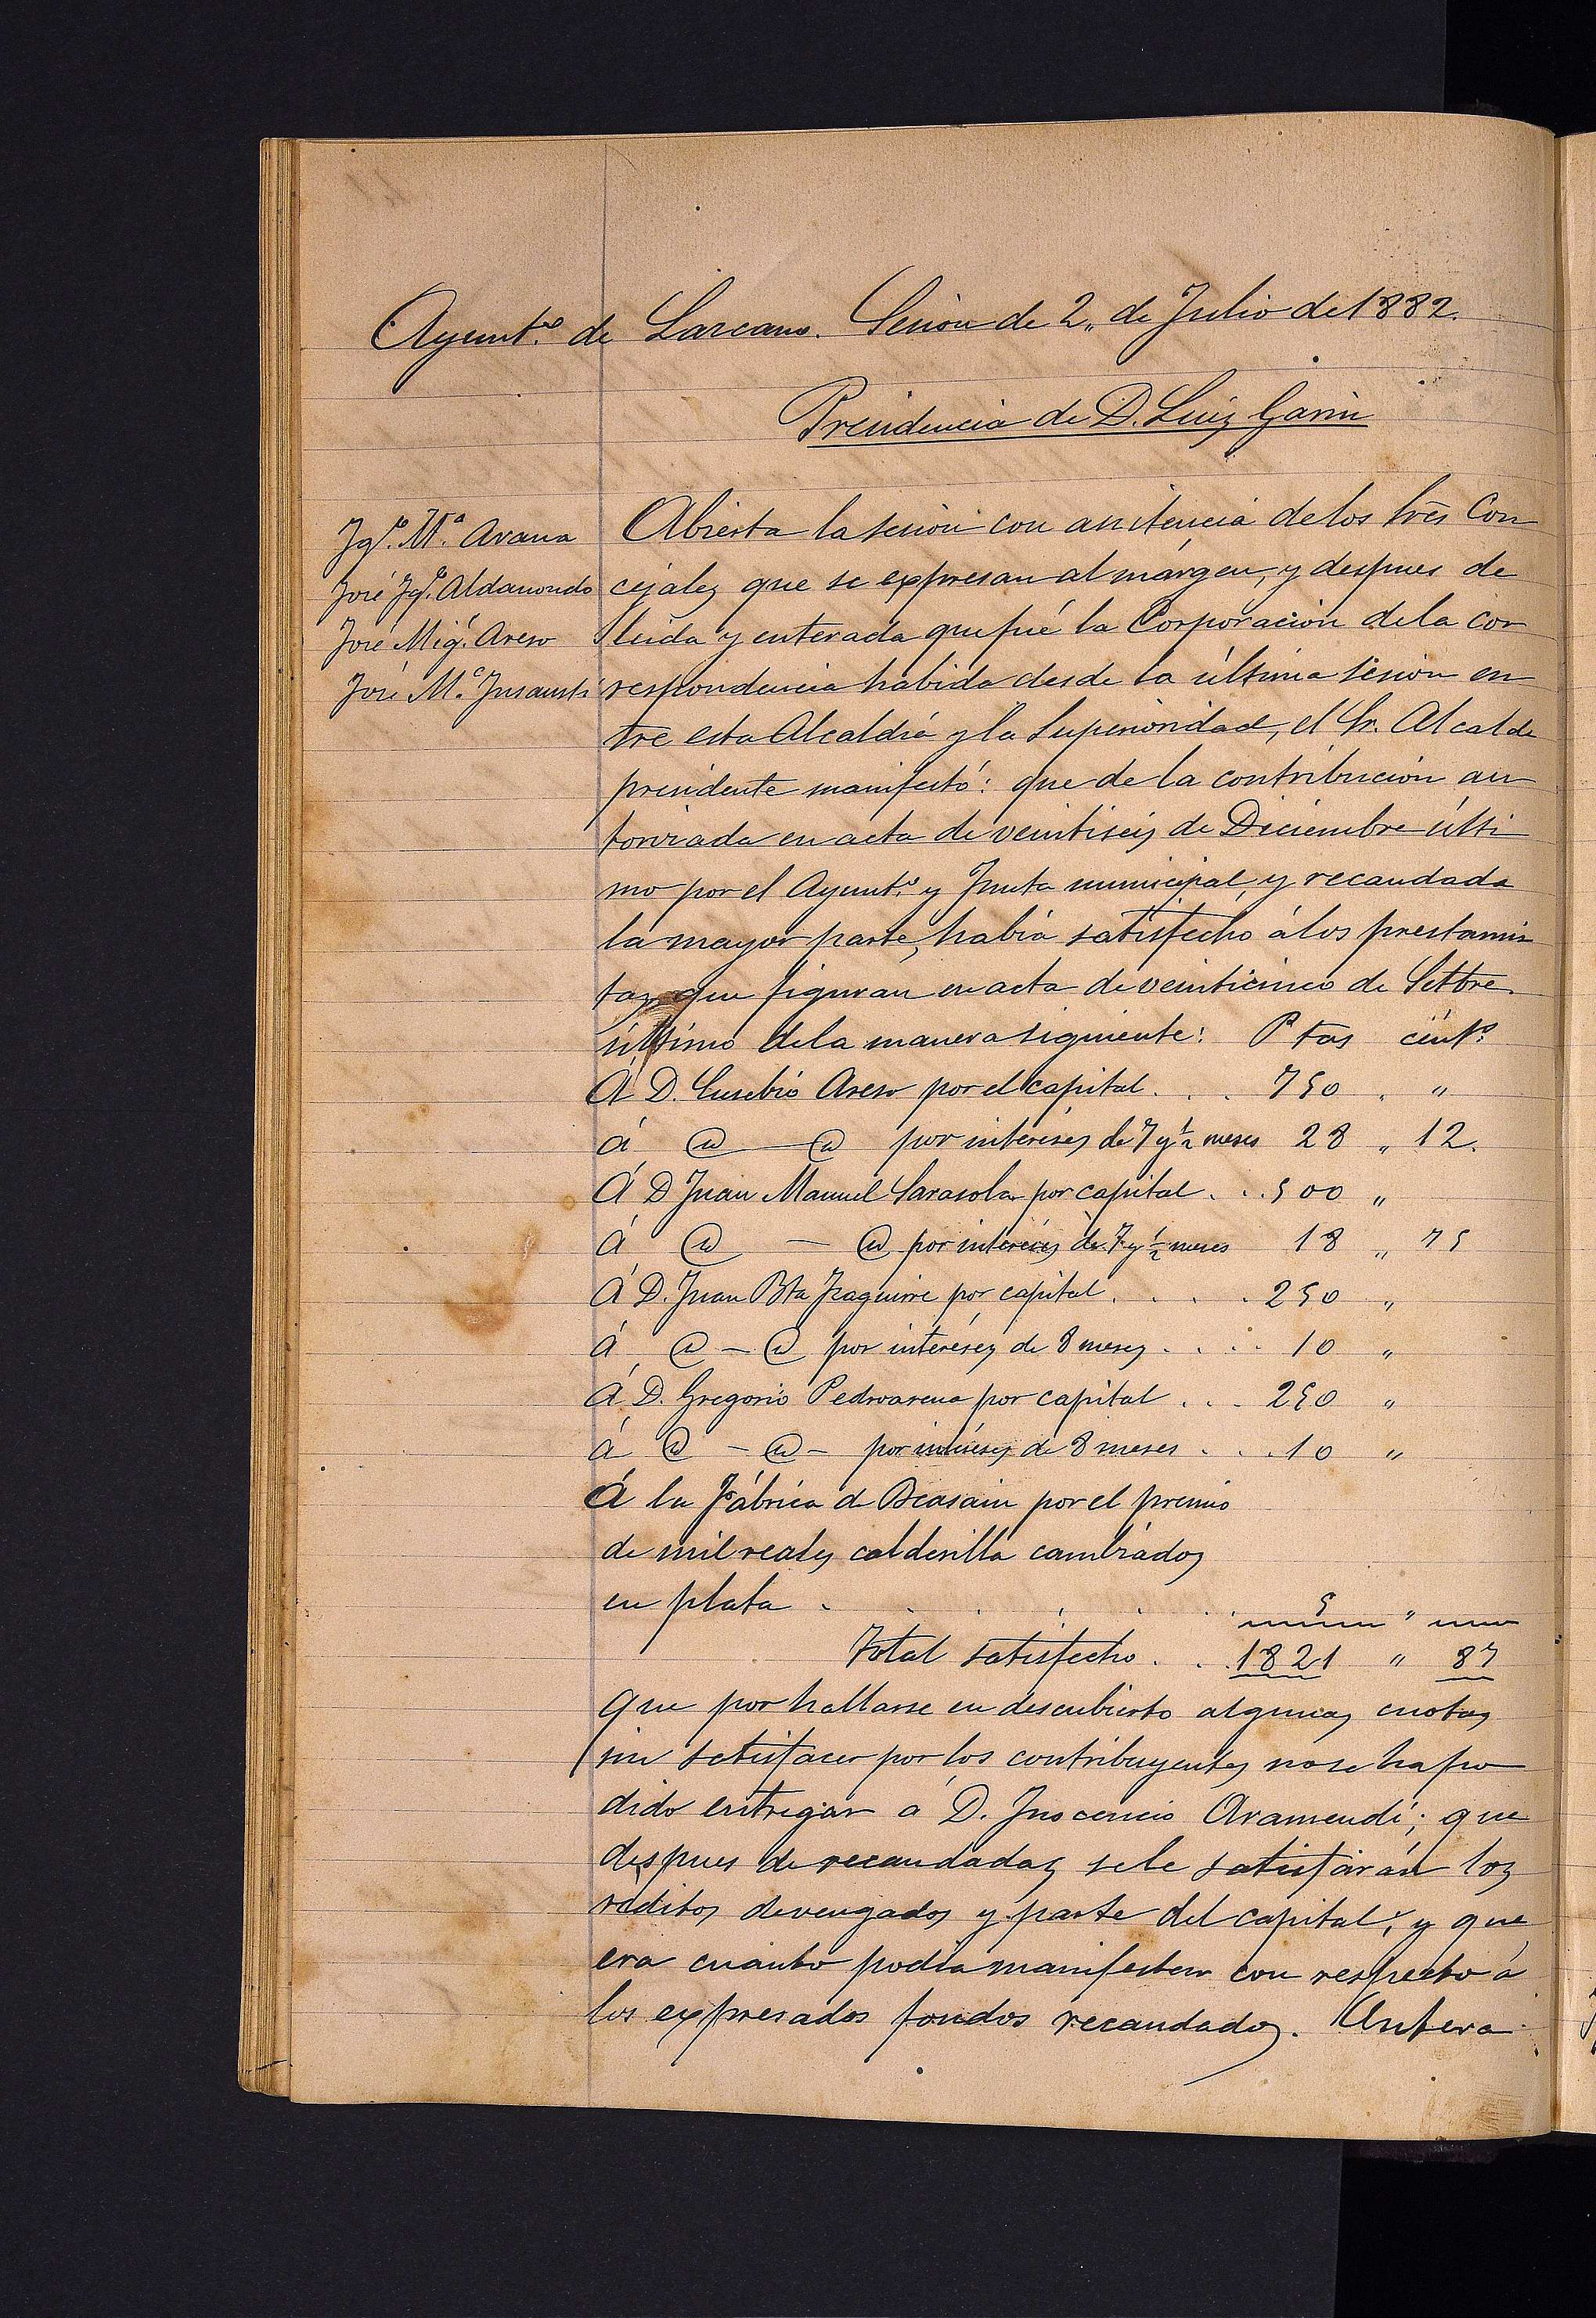 Ayunt.º de Lazcano. Sesion de 2,, de Julio de 1882.
Presidencia de D. Luiz Garin
Ygº. Mª. Arana
José Ygº. Aldanondo
José Mig.l Areso
José Mª. Insausti
Abierta la sesion con asistencia de los Sres Con
cejales que se expresan al márgen, y despues de
leida y enterada que fué la Corporacion de la cor
respondencia habida desde la última sesion en
tre esta Alcaldía y la Superioridad, el Sr. Alcalde
presidente manifestó: que de la contribucion au
torizada en acta de veintiseis de Diciembre últi
mo por el Ayunt.º y Junta municipal, y recaudada
la mayor parte, habia satisfecho á los prestamis
tas que figuran en acta de veinticinco de Setbre.
último de la manera siguiente: Ptas cént.s
Á D. Eusebio Areso por el capital . . . 750 . "
á @ — @ por intereses de 7 y ½ meses 28 " 12.
Á D Juan Manuel Sarasola por capital . . . 500 "
Á @ — @ por intereses de 7 y ½ meses 18 " 75
Á D. Juan Bta Yzaguirre por capital . . . . . 250 "
á @ — @ por intereses de 8 meses . . . . 10 "
Á D. Gregorio Pedroarena por capital . . . 250 "
á @ — @ — por intereses de 8 meses . . . 10 "
Á la Fábrica d Beasain por el premio
de mil reales calderilla cambiados
en plata . . . . . . . 5 "
Total satisfecho . . . 1821 " 87
que por hallarse en descubierto algunas cuotas
sin satisfacer por los contribuyentes no se ha po
dido entregar á D. Inocencio Aramendi; que
despues de recaudadas se le satisfarán los
réditos devengados y parte del capital, y que
era cuanto podia manifestar con respecto á
los expresados fondos recaudados. Entera